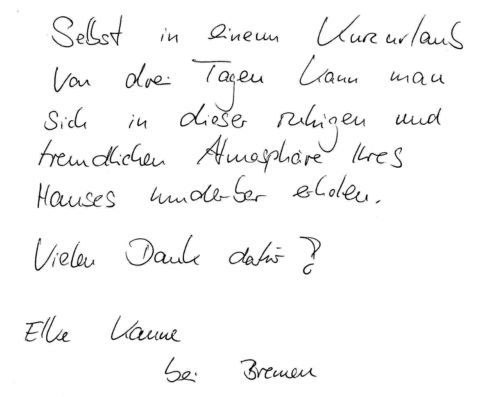 Selbst in einem Kurzurlaub
von drei Tagen kann man
sich in dieser ruhigen und
freundlichen Atmosphäre Ihres
Hauses wunderbar erholen.
Vielen Dank dafür!
Elke Kanne
bei Bremen